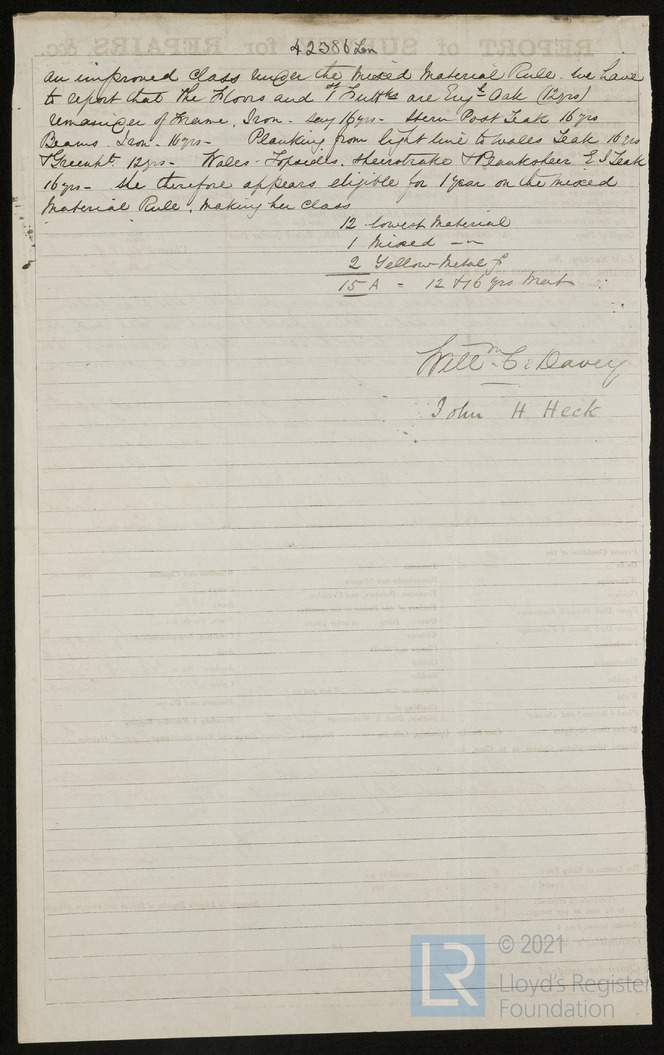 42386 Lon
an improved Class under the Mixed Material Rule. We have
to report that the Floors and 1st Futtks are Engh Oak (12yrs)
remainder of Frame, Iron - say 16yrs - Stern Post Teak 16 yrs
Beams. Iron - 16yrs - Planking from light line to wales Teak 16 yrs
& Greenht. 12yrs - Wales - Topsides, Sheerstrake & Planksheer E I Teak
16yrs - She therefore appears eligible for 1 year on the mixed
Material Rule, making her class
12 lowest Material
1 Mixed
2 Yellow Metal
15 A = 12 & 16 yrs Mat
Willm C. Davey
John H Heck
© 2021
LR
Lloyd's Register
Foundation